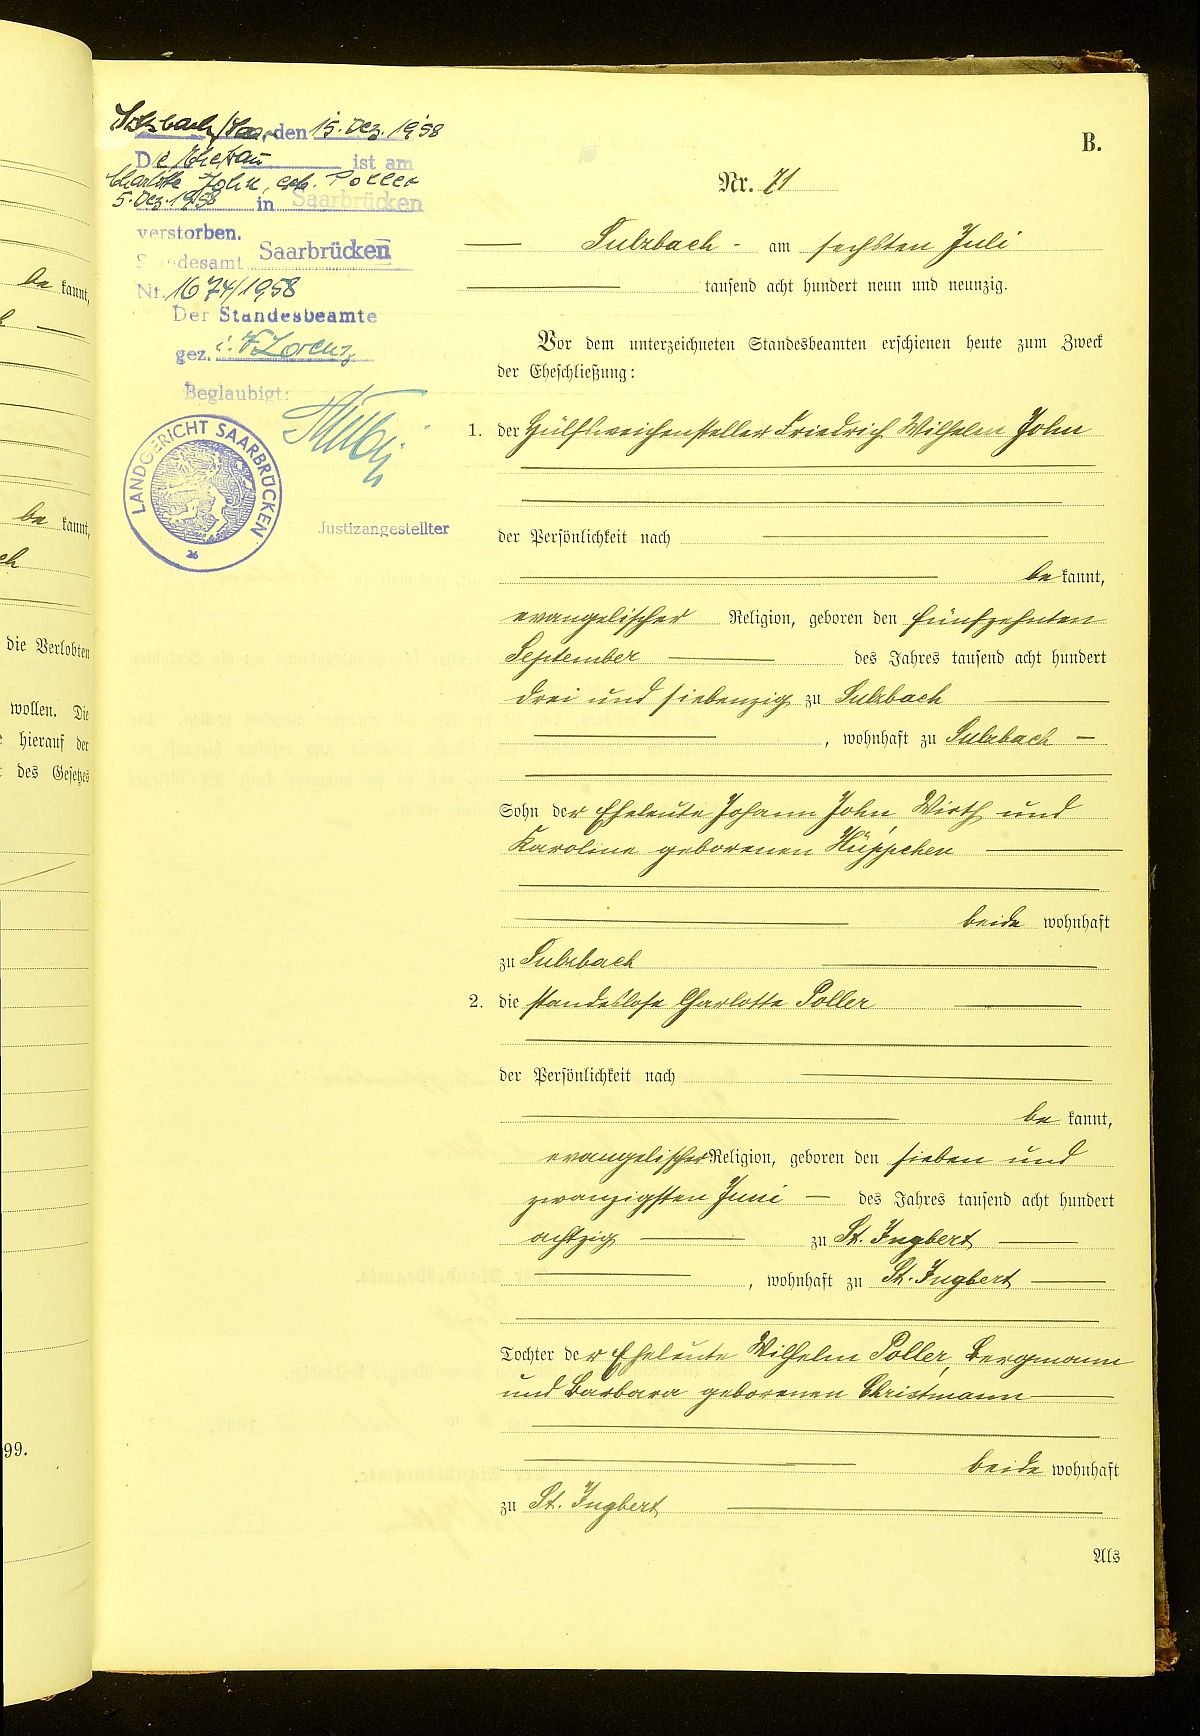 B.
Sulzbach/Saar, den 15. Dez. 1958
Die Ehefrau ist am
Charlotte John, geb. Poller
5. Dez. 1958 in Saarbrücken
verstorben.
Standesamt Saarbrücken
Nr. 1674/1958
Der Standesbeamte
gez. Lorenz
Beglaubigt:
LANDGERICHT SAARBRÜCKEN
26
Justizangestellter
Nr. 71
Sulzbach - am sechsten Juli
tausend acht hundert neun und neunzig.
Vor dem unterzeichneten Standesbeamten erschienen heute zum Zweck
der Eheschließung:
1. der Hülfsweichensteller Friedrich Wilhelm John
der Persönlichkeit nach
be kannt,
evangelischer Religion, geboren den fünfzehnten
September des Jahres tausend acht hundert
drei und siebenzig zu Sulzbach
, wohnhaft zu Sulzbach
Sohn der Eheleute Johann John, Wirth und
Karoline geborenen Hüppchen
beide wohnhaft
zu Sulzbach
2. die standeslose Charlotte Poller
der Persönlichkeit nach
be kannt,
evangelischer Religion, geboren den sieben und
zwanzigsten Juni des Jahres tausend acht hundert
achtzig zu St. Ingbert
, wohnhaft zu St. Ingbert
Tochter der Eheleute Wilhelm Poller, Bergmann
und Barbara geborenen Christmann
beide wohnhaft
zu St. Ingbert
Als
be kannt,
be kannt,
die Verlobten
wollen. Die
hierauf der
des Gesetzes
99.